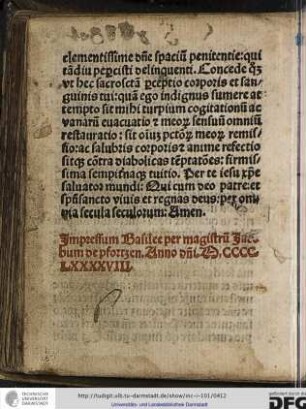 clementissime dñe spaciũ penitentie: qui
tãdiu pepcisti delinquenti. Concede q̃s
vt hec sacroscta pceptio corporis et san-
guinis tui: quã ego indignus sumere at
tempto sit mihi turpium cogitationũ ac
vanarũ euacuatio ⁊ meoꝝ sensuũ omniũ
restauratio: sit oĩuꝫ pctõꝝ meoꝝ remis-
sio: ac salubris corporis ⁊ anime refectio
sitqꝫ cõtra diabolicas tẽptatões: firmis-
sima sempitnaqꝫ tuitio. Per te iesu xp̃e
saluator mundi: Qui cum deo patre: et
spũsancto viuis et regnas deus: per om
nia secula seculorum: Amen.
Impressum Basilee per magistrũ Jac-
bum de pfortzen. Anno dñi. M. CCCC
LXXXXVIII.
http://tudigit.ulb.tu-darmstadt.de/show/inc-i-101/0452
Universitäts- und Landesbibliothek Darmstadt
TECHNISCHE
UNIVERSITÄT
DARMSTADT
gefördert durch die
DFG